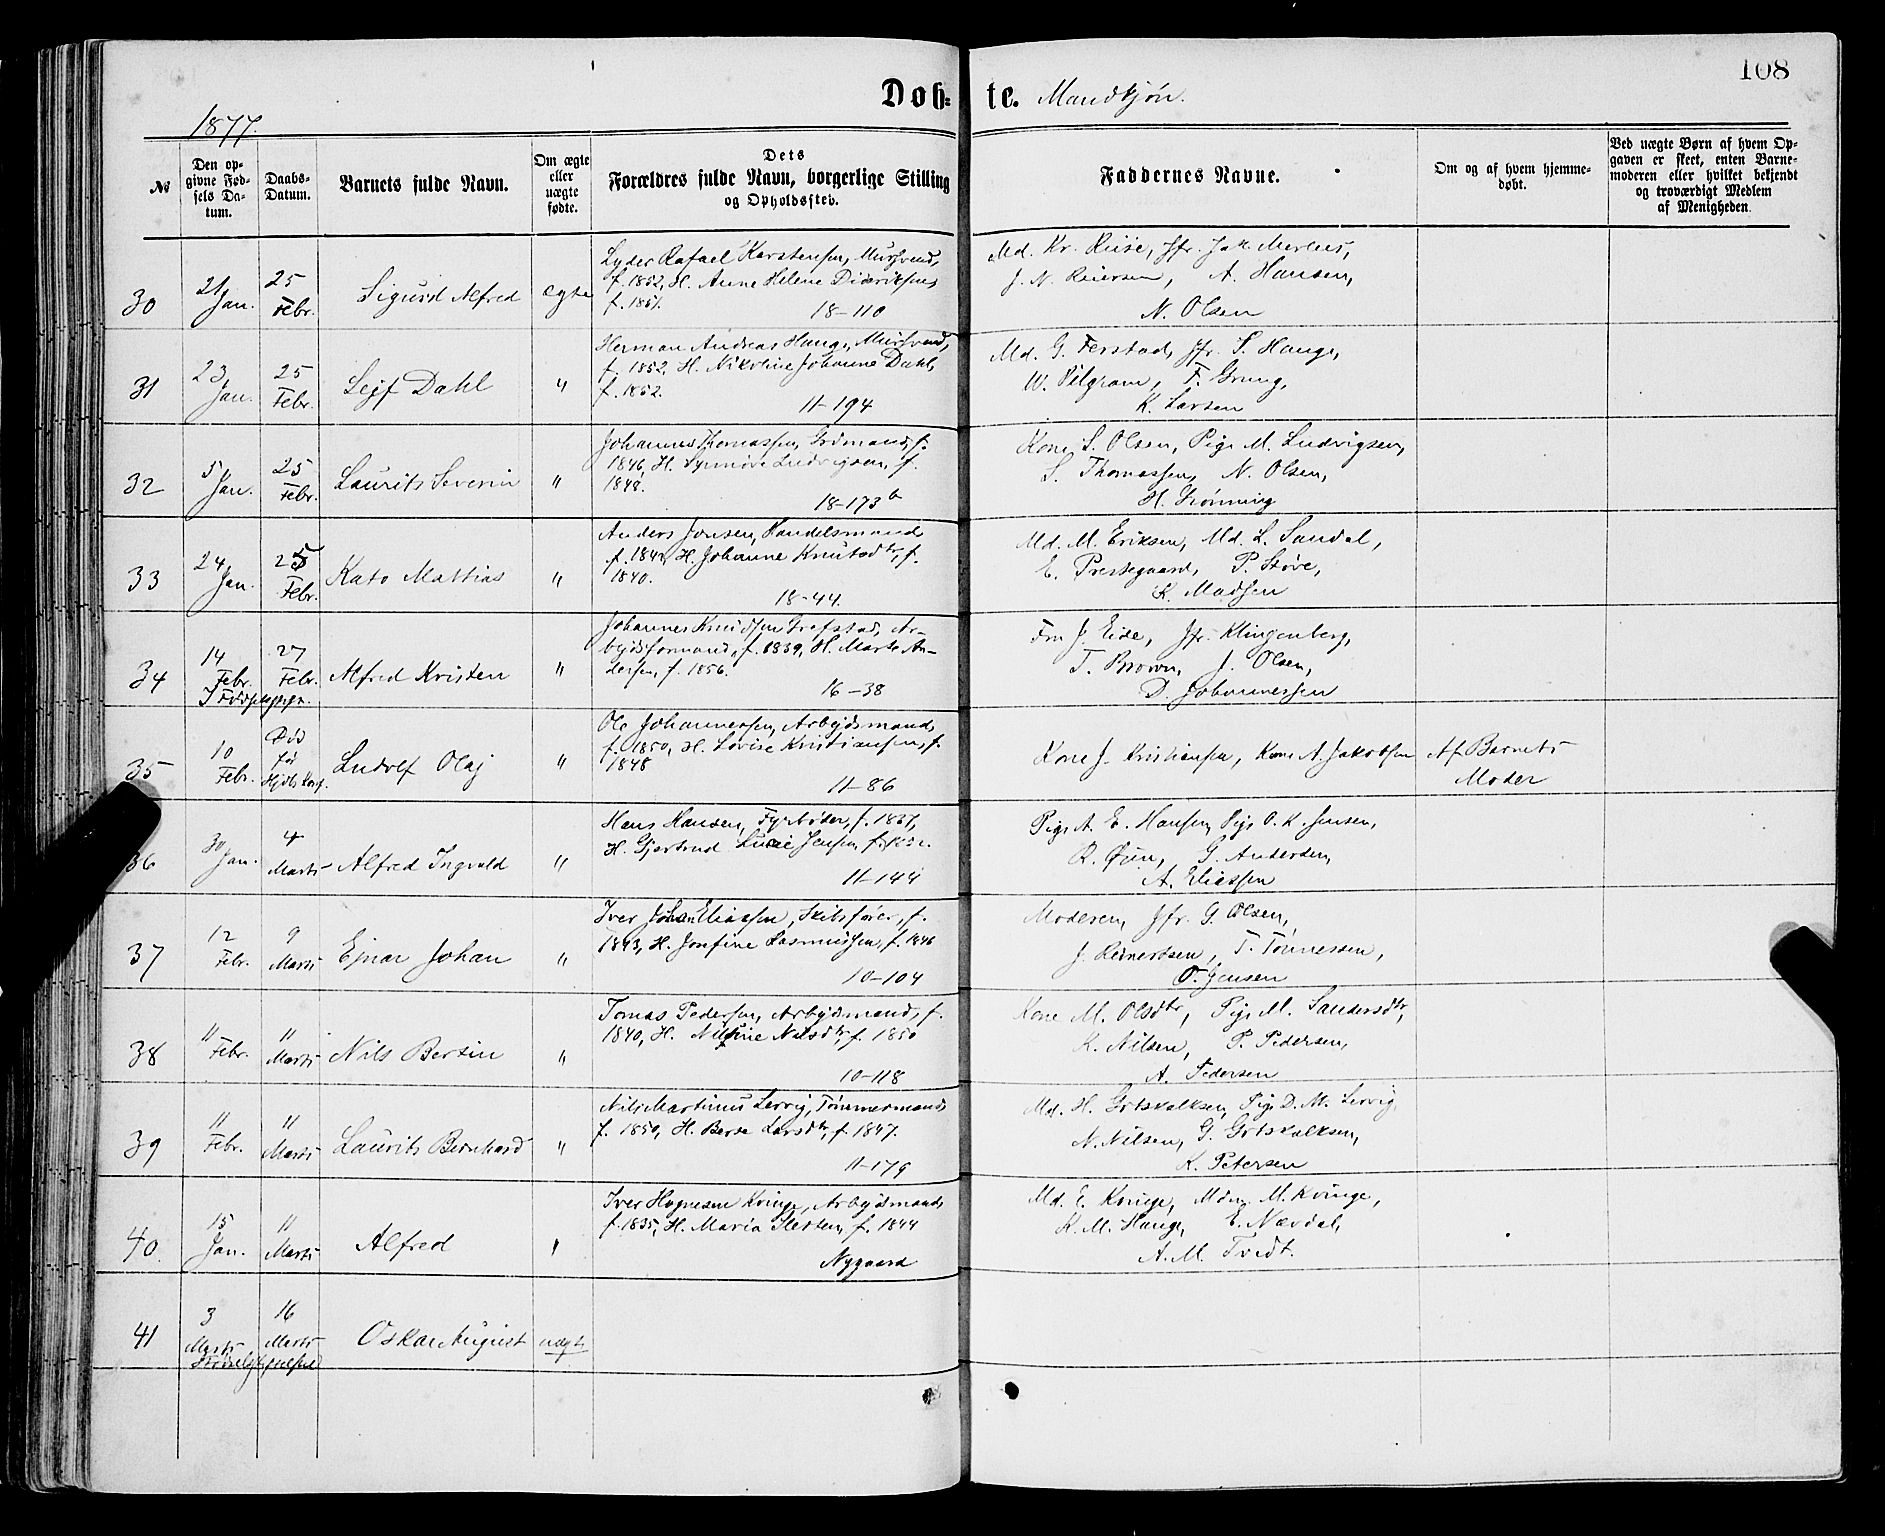 108
Døb= te. Mandkjøn.
1877.
№
Den op-
givne Fød-
sels Da-
tum.
Daabs-
Datum.
Barnets fulde Navn.
Om ægte
eller
uægte
fødte.
Dets
Forældres fulde Navn, borgerlige Stilling
og Opholdssted.
Faddernes Navne.
Om og af hvem hjemme-
døbt.
Ved uægte Børn af hvem Op-
gaven er skeet, enten Barne-
moderen eller hvilket bekjendt
og troværdigt Medlem
af Menigheden.
30
21
Jan.
25
Febr.
Sigurd Alfred
ægte
Lyder Rafael Karstensen, Mursvend,
f. 1852, H. Anne Helene Dideriksen,
f. 1851.
18-110
Md. Kr. Riise, Jfr.
J. N. Reiersen, A. Hansen,
N. Olsen
31
23
Jan.
25
Febr.
Lejf Dahl
"
Herman Andreas Hauge, Mursvend,
f. 1852, H. Nikoline Johanne Dahl,
f. 1852.
11-194
Md. G. Ferstad, Jfr. S. Hauge,
W. Pilgram, F. Grung,
K. Larsen
32
5
Jan.
25
Febr.
Laurits Severin
"
Johannes Thomassen, f.
1846, H. Synnøve Ludvigsen, f.
1848.
18-173 b
Kone S. Olsen, Pige M. Ludvigsen,
S. Thomassen, N. Olsen,
H. Grønning
33
24
Jan.
25
Febr.
Kato Mattias
"
Anders Jonsen, Handelsmand
f. 1842, H. Johanne Knutsdtr, f.
1840.
18-44.
Md. M. Eriksen, Md. L. Sandal,
E. Prestegaard, P. Støve,
K. Madsen
34
14
Febr.
27
Febr.
I Fødselsstift.
Alfred Kristen
"
Johannes Knudsen Grefstad, Ar-
bejdsformand, f. 1839, H. Marte An-
dersen, f. 1856.
16-38
Fru J. Eide, Jfr. Klingenberg,
T. Brown, J. Olsen,
D. Johannessen
35
10
Febr.
Død
før
Ludolf Olaj
"
Ole Johannessen, Arbejdsmand,
f. 1850, H. Lovise Kristiansen, f.
1848
11-86
Kone J. Kristiansen, Kone A. Jakobsen
Af Barnets
Moder
36
30
Jan.
4
Marts
Alfred Ingvald
"
Hans Hansen, Fyrbøder, f. 1837,
H. Gjertrud Lucie Jensen, f.
11-144
Pige A. E. Hansen, Pige O. K. Jensen,
R. G. Andersen,
A. Eliassen
37
12
Febr.
9
Marts
Ejnar Johan
"
Iver Johan Eliassen, Skibsfører, f.
1843, H. Josefine Rasmussen, f. 1846
10-104
Moderen, Jfr. G. Olsen,
J. Reinertsen, T. Tønnessen,
O. Jensen
38
"
Febr.
"
Marts
Nils Bertin
"
Tomas Pedersen, Arbejdsmand, f.
1840, H. Nilsine Nilsdtr, f. 1850
10-118
Kone M. Olsdtr, Pige M. Sandersdtr,
K. Nilsen, P. Pedersen,
A. Pedersen
39
"
Febr.
"
Marts
Laurits Bernhard
"
Nils Martinus Lervig, Tømmermand
f. 1850, H. Berte Larsdtr, f. 1847.
11-179
Md. H. Gotskalksen, Pige D. M. Lervig,
N. Nilsen, G. Gotskalksen,
K. Petersen
40.
15
Jan.
"
Marts
Alfred
"
Iver Hognesen Kvinge, Arbejdsmand
f. 1835, H. Maria Sletten, f. 1844
Nygaard
Md. E. Kvinge, Mdm. M. Kvinge,
K. M. Hauge, E. Nævdal,
A. M. Tvedt.
41
3
Marts
16
Marts
Oskar August
uægte